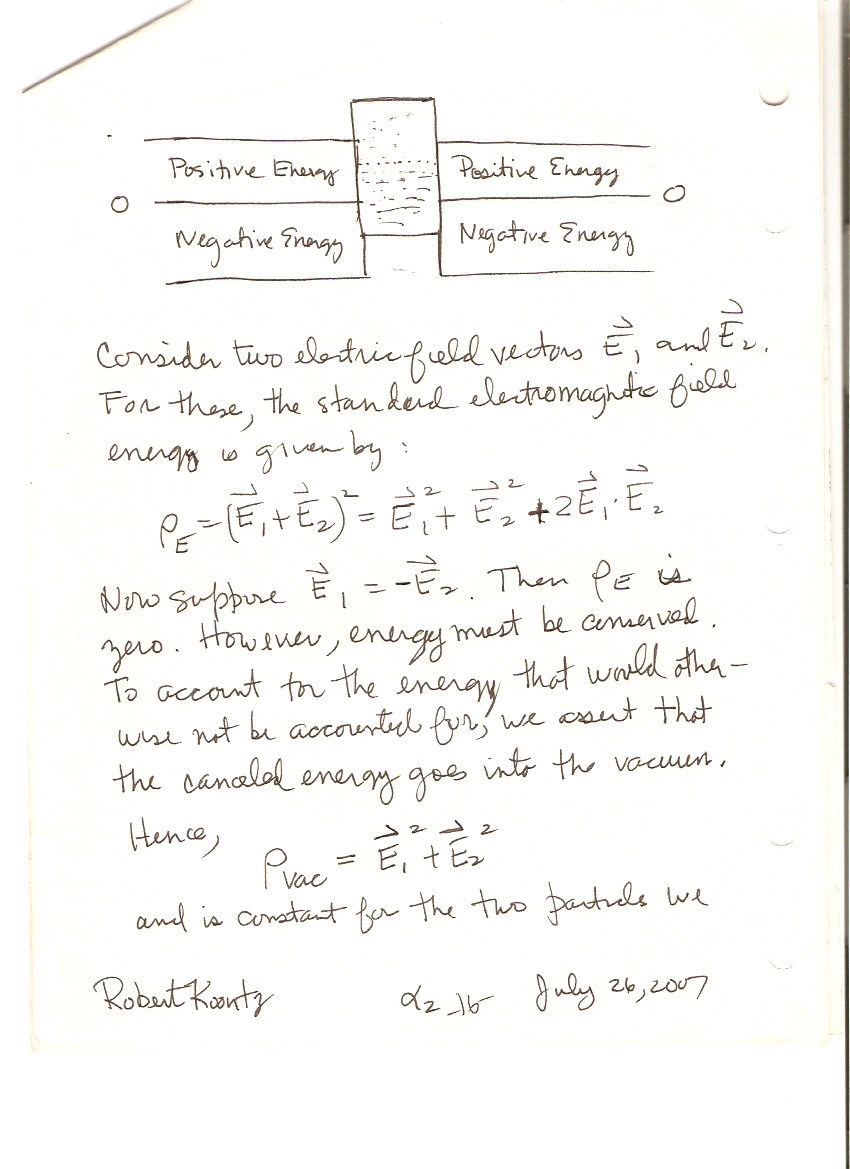 Positive Energy Positive Energy
O O
Negative Energy Negative Energy
Consider two electric field vectors E⃗₁ and E⃗₂.
For these, the standard electromagnetic field
energy is given by :
ρ_E = (E⃗₁ + E⃗₂)² = E⃗₁² + E⃗₂² + 2E⃗₁ · E⃗₂
Now suppose E⃗₁ = -E⃗₂. Then ρ_E is
zero. However, energy must be conserved.
To account for the energy that would other-
wise not be accounted for, we assert that
the canceled energy goes into the vacuum.
Hence,
ρ_vac = E⃗₁² + E⃗₂²
and is constant for the two particles we
Robert Koontz α2_16 July 26, 2007